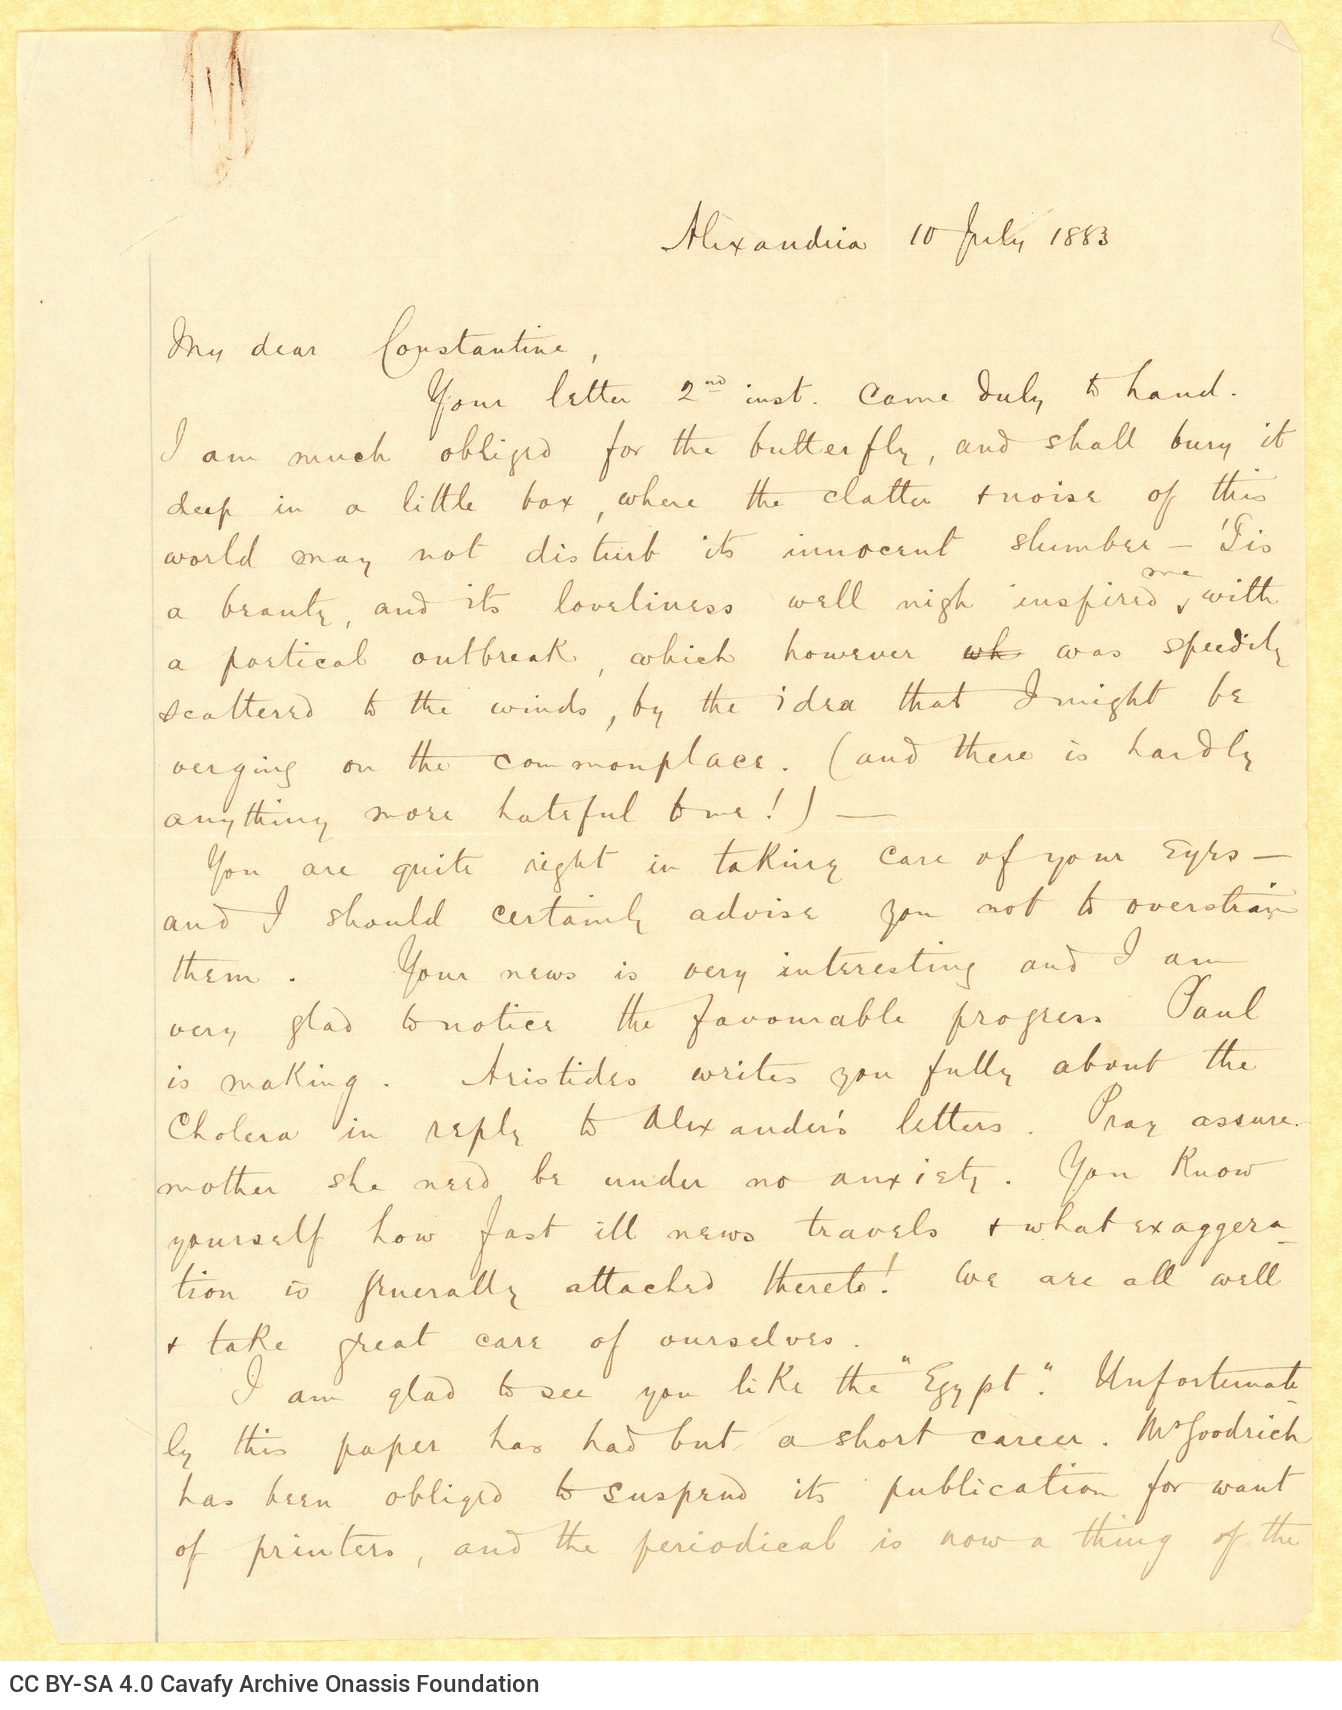 Alexandria 10 July 1883
My dear Constantine,
Your letter 2nd inst. came duly to hand.
I am much obliged for the butterfly, and shall bury it
deep in a little box, where the clatter + noise of this
world may not disturb its innocent slumber – 'Tis
a beauty, and its loveliness well nigh inspired me with
a poetical outbreak, which however wh was speedily
scattered to the winds, by the idea that I might be
verging on the commonplace. (and there is hardly
anything more hateful to me!) —
You are quite right in taking care of your eyes —
and I should certainly advise you not to overstrain
them. Your news is very interesting and I am
very glad to notice the favourable progress Paul
is making. Aristides writes you fully about the
Cholera in reply to Alexander's letters. Pray assure
mother she need be under no anxiety. You know
yourself how fast ill news travels + what exaggera-
tion is generally attached thereto! We are all well
+ take great care of ourselves.
I am glad to see you like the "Egypt". Unfortunate-
ly this paper has had but a short career. Mr Goodrich
has been obliged to suspend its publication for want
of printers, and the periodical is now a thing of the
CC BY-SA 4.0 Cavafy Archive Onassis Foundation